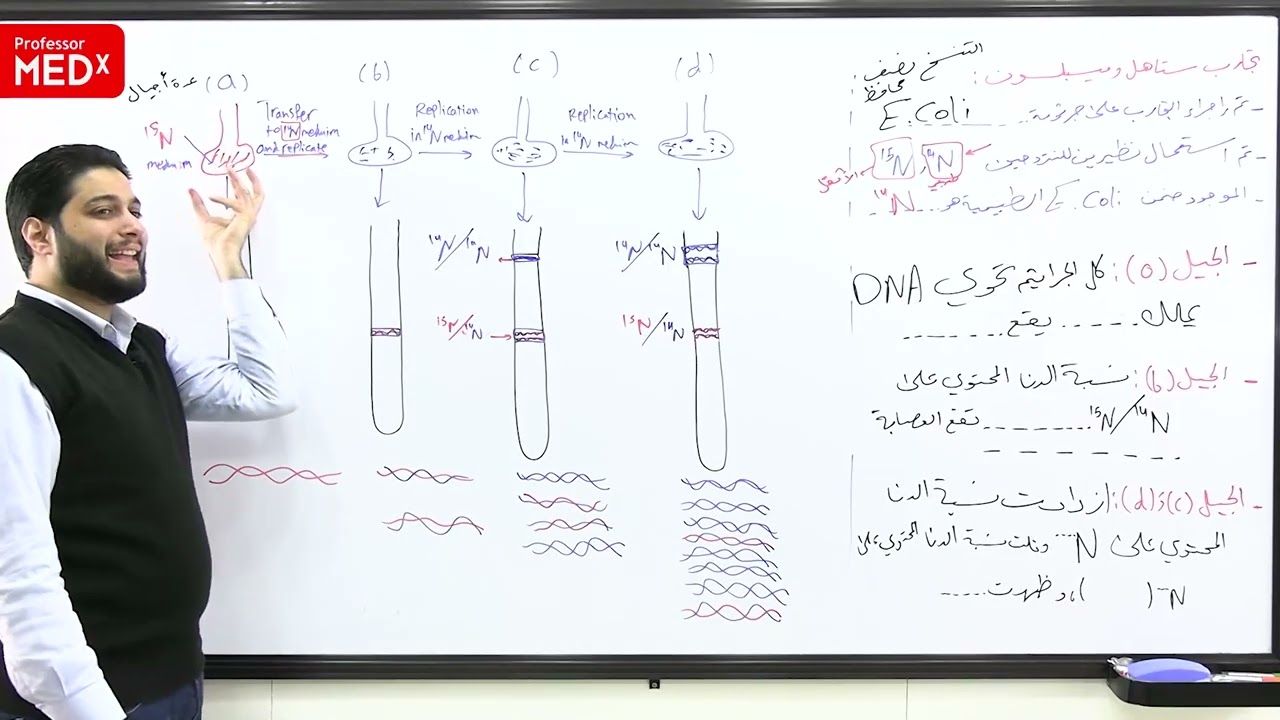 Professor
MEDX
عدة أجيال (a)
(b)
(c)
(d)
15N
medium
Transfer
to 14N medium
and replicate
Replication
in 14N medium
Replication
in 14N medium
14N/14N
15N/14N
14N/14N
15N/14N
التنسخ نصف
محافظ
تجارب ستاهل وميسلسون:
- تم اجراء التجارب على جرثومة E.Coli
- تم استعمال نظيرين للنتروجين 14N, 15N
الأثقل
- الموجود ضمن E.Coli الطبيعية هو 14N
- الجيل (a): كل الجراثيم تحوي DNA
يقع
- الجيل (b): نسبة الدنا المحتوي على
15N/14N تقع العصابة
- الجيل (c) و (d): ازدادت نسبة الدنا
المحتوي على N وقلت نسبة الدنا المحتوي على
N ( )، وظهرت